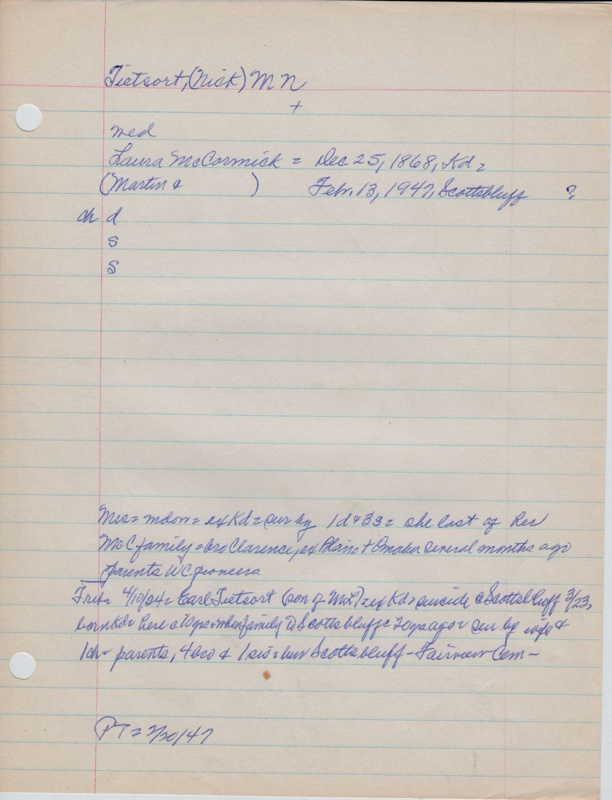 Tietsort, (Nick) M N
+
med
Laura McCormick = Dec 25, 1868, Kd =
(Martin & ) Feb. 13, 1947, Scottsbluff ?
ch d
s
s
Mrs = = ex Kd = sur by 1 d & 3 s = she last of her
McC family = bro Clarence, ex Plain = + Omaha several months ago
parents WC pioneers
4/10/24 = Earl Tietsort (son of ) = ex Kd = suicide @ Scottsbluff 3/23,
born Kd = here @ family to Scottsbluff ago = sur by wife &
1 ch = parents, 4 bro & 1 sis = bur Scottsbluff - Fairview Cem -
PT = 2/20/47